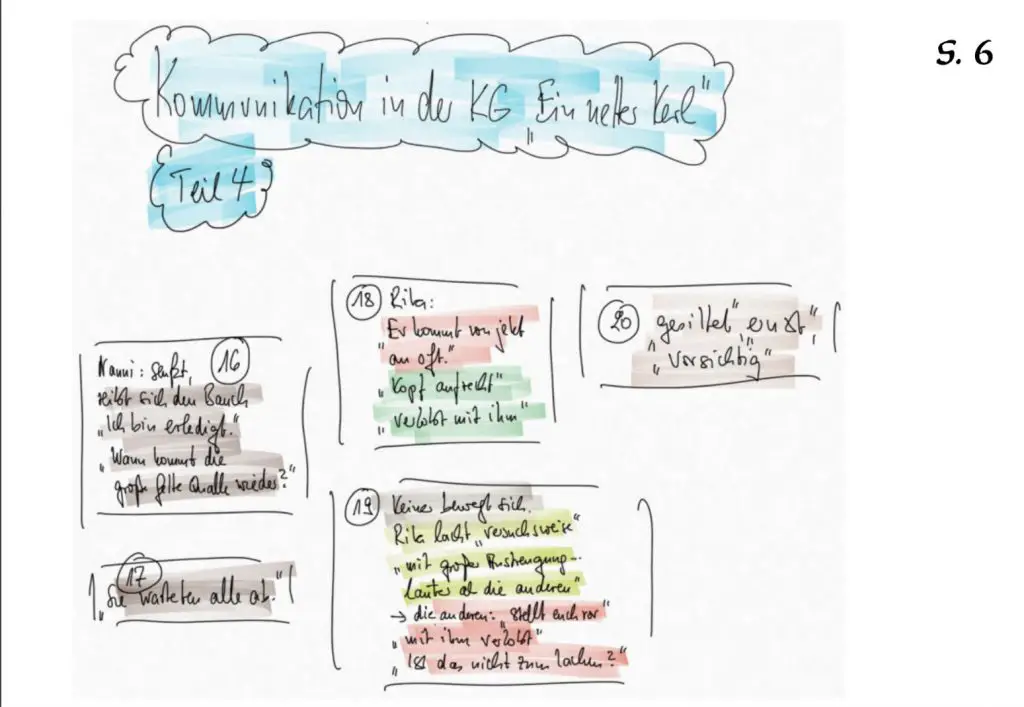 S. 6
Kommunikation in der KG „Ein netter Kerl"
Teil 4
16
Nanni: seufzt,
reibt sich den Bauch
„Ich bin erledigt."
„Wann kommt die
große fette Qualle wieder?"
17
„Sie warteten alle ab."
18 Rita:
„Er kommt von jetzt
an oft."
„Kopf aufrecht"
„verlobt mit ihm"
19 Keiner bewegt sich.
Rita lacht „versuchsweise"
„mit großer Anstrengung...
lauter als die anderen"
→ die anderen: „Stellt euch vor"
„mit ihm verlobt"
„Ist das nicht zum lachen?"
20 „gesittet", „ernst",
„vorsichtig"